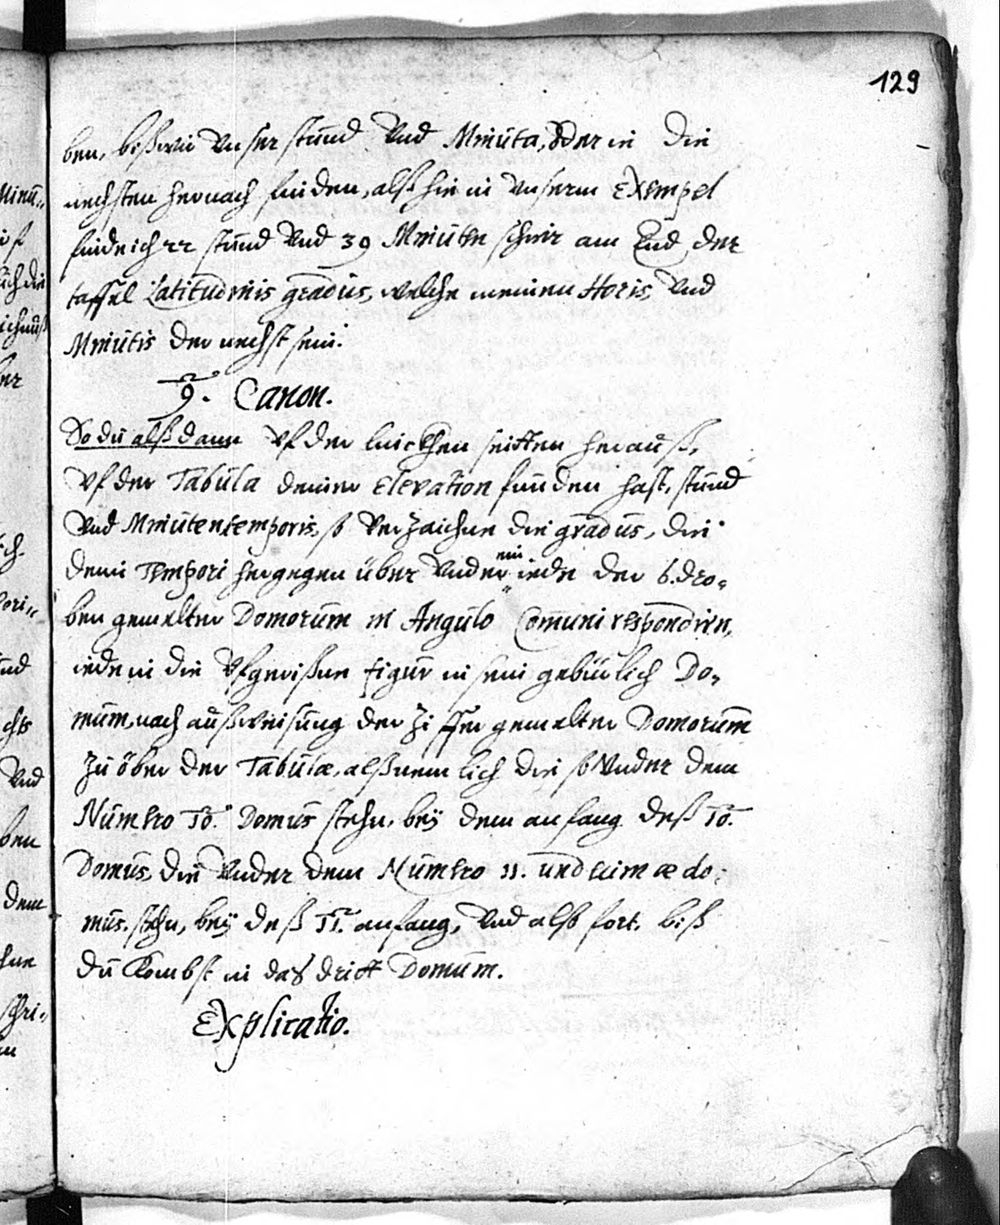 129
ben, biß wir Vnser stund Vnd Minuta, oder in die
nechsten hernach finden, alß hie in Vnserm Exempel
finde ich 22 stund Vnd 39 Minuten schir am End der
taffel Latitudinis gradus, welche meinen Horis, Vnd
Minutis der nechst sein.
9. Canon.
So du alß dann Vf der linckhen seitten heraus,
Vf der Tabula deiner Elevation funden hast, stund
Vnd Minuten temporis, so Verzaichne die gradus, die
dem Tempori hergegen über Vnder ein iede der 6. dro-
ben gemelten Domorum in Angulo Comuni respondirn,
iede in die Vfgerißne figur in sein gebürlich Do-
mum, nach außweisung der Ziffer gemelter Domorum
zu öber der Tabulæ, alß nemlich die so Vnder dem
Numero 10. Domus stehn, bey dem anfang deß 10.
Domus, die Vnder dem Numero 11. undecimæ do-
mus stehn, bey deß 11. anfang, Vnd also fort, biß
du kombst in das dritt Domum.
Explicatio.